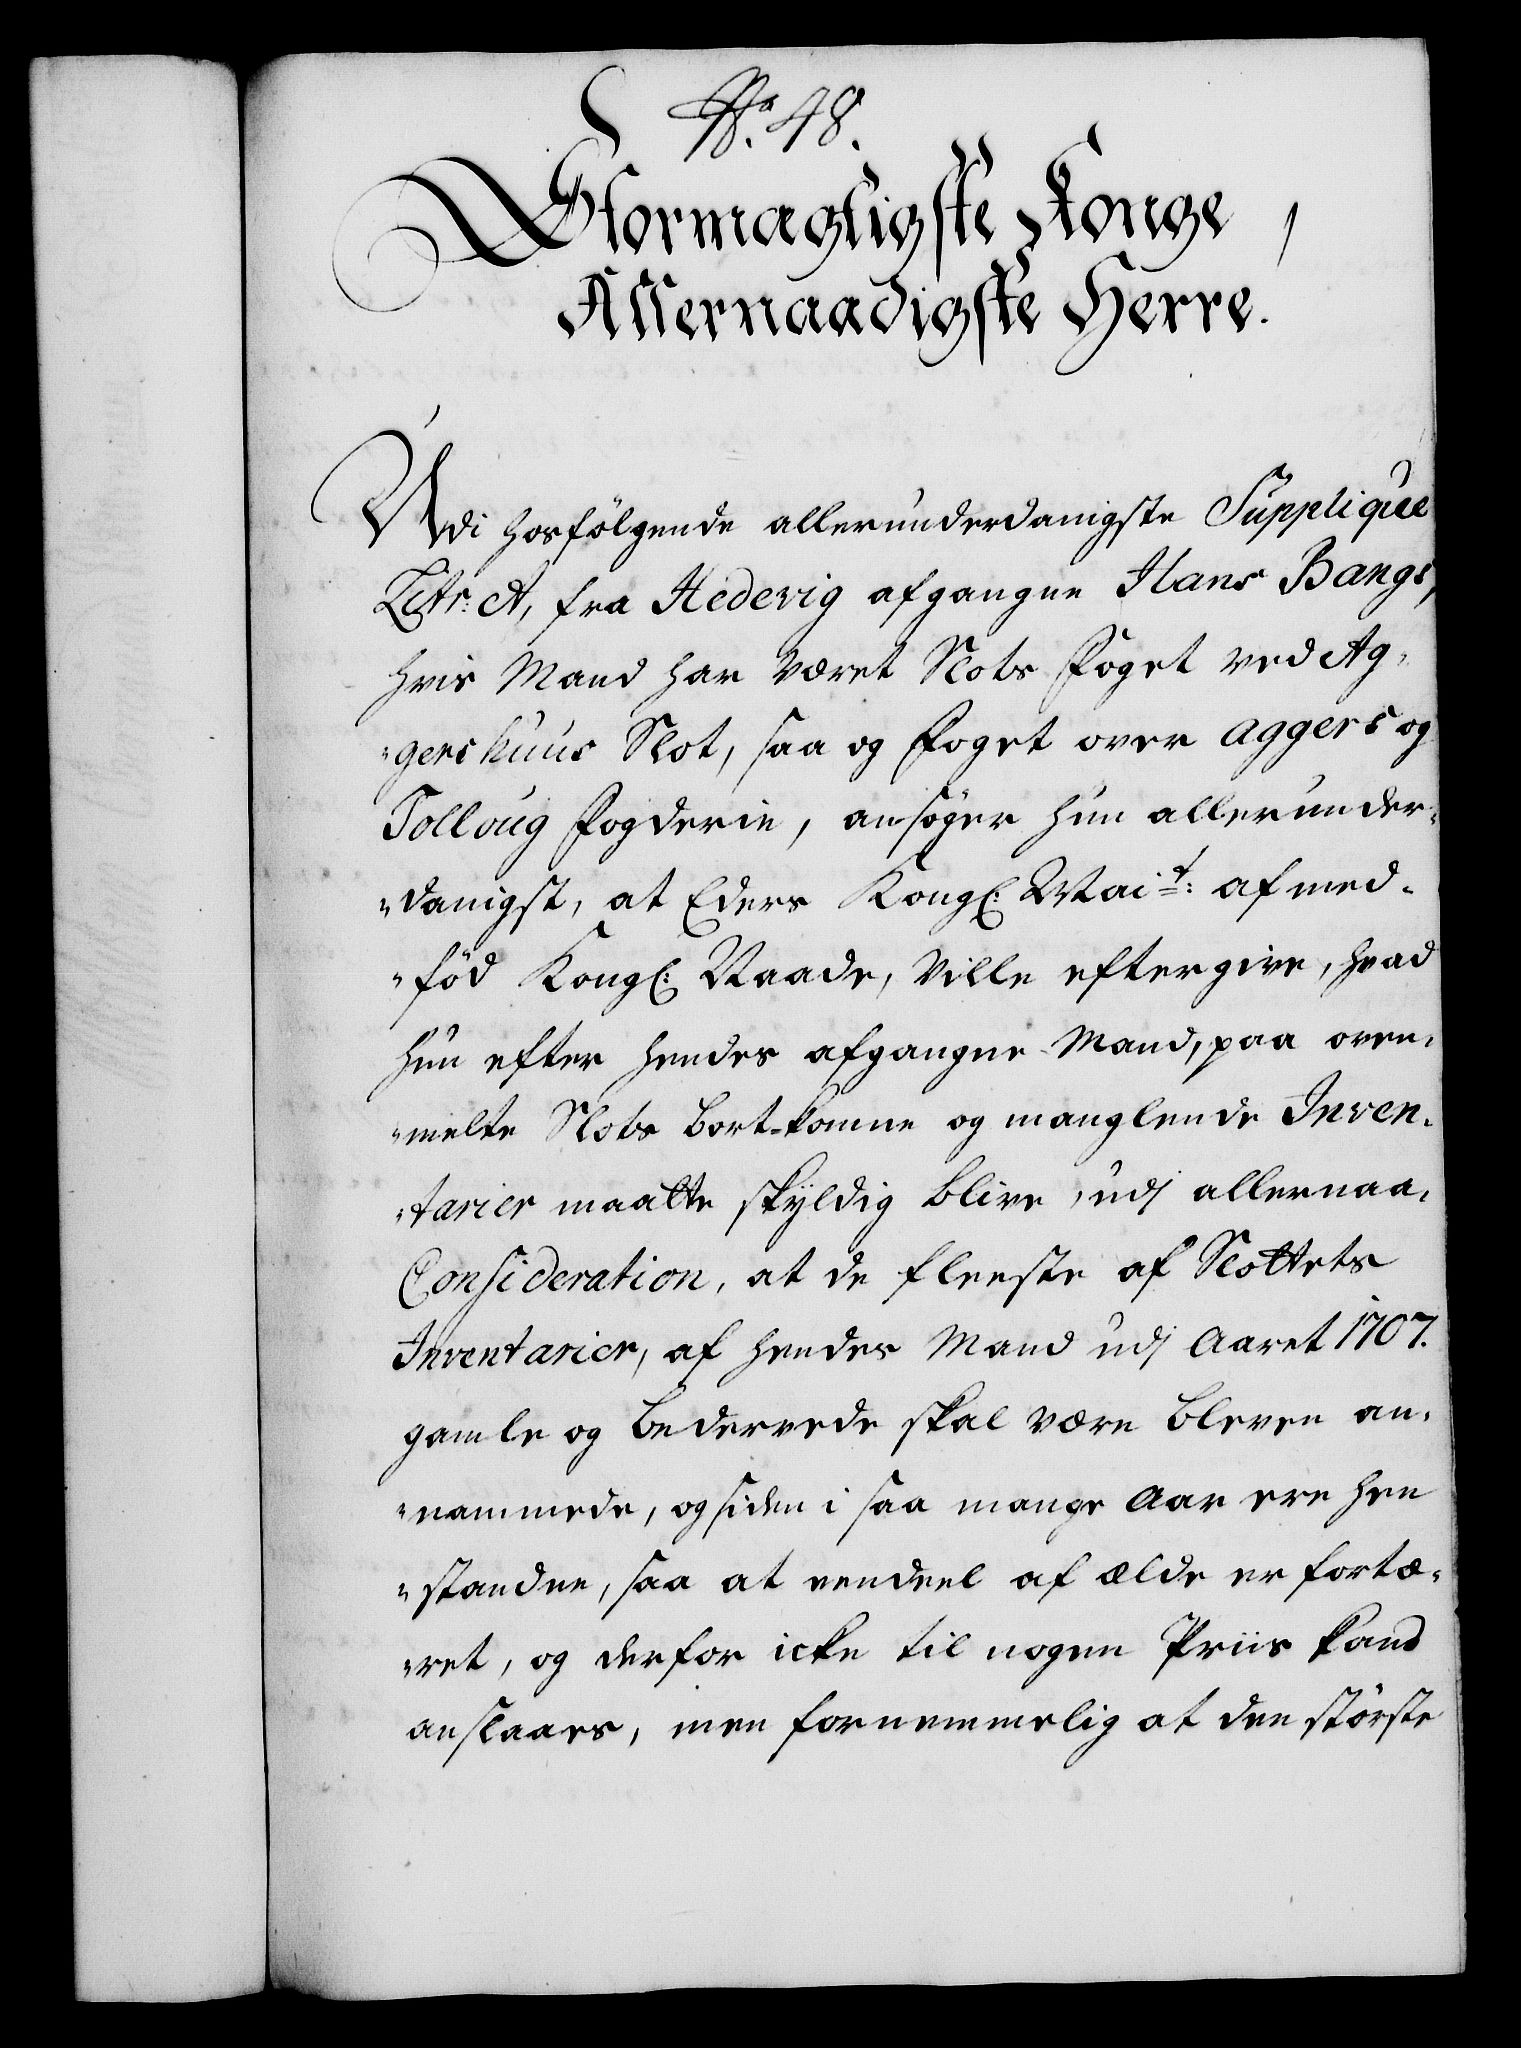 No. 48.
Stormægtigste Konge,
Allernaadigste Herre.
Udi hosfölgende allerunderdanigste Supplique
Litr: A, fra Hedevig afgangne Hans Bangs,
hvis Mand har været Slots Foget ved Ag-
"gershuus Slot, saa og Foget over Aggers og
Folloug Fogderie, ansöger hun allerunder-
"danigst, at Eders Kongl: Mait: af med-
"föd Kongl: Naade, ville eftergive, hvad
hun efter hendes afgangne Mand, paa oven-
"melte Slots bort-komne og manglende Inven-
"tarier maatte skyldig blive, udj allernaa:
Consideration, at de fleeste af Slottets
Inventarier, af hendes Mand udj Aaret 1707.
gamle og bedervede skal være bleven an-
"nammede, og siden i saa mange Aar ere hen
"standne, saa at eendeel af ælde er fortæ-
"ret, og derfor icke til nogen Priis kand
anslaaes, men fornemmelig at den störste